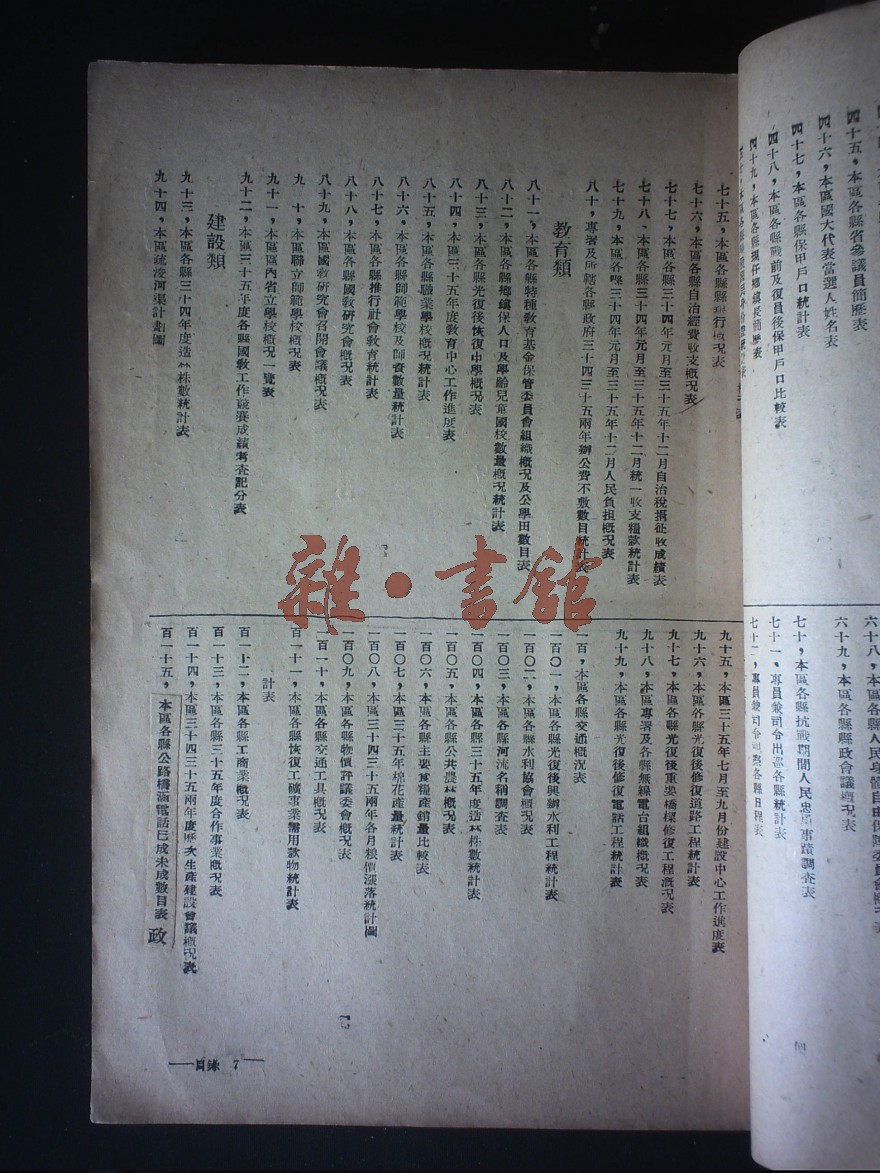 四十五，本區各縣省參議員簡歷表
四十六，本區國大代表當選人姓名表
四十七，本區各縣保甲戶口統計表
四十八，本區各縣戰前及復員後保甲戶口比較表
四十九，本區各縣現任鄉鎮長簡歷表
六十九，本區各縣縣政會議概況表
七十，本區各縣抗戰期間人民忠勇事蹟調查表
七十一、專員兼司令出巡各縣統計表
七十五，本區各縣
七十六，本區各縣自治經費收支概況表
七十七，本區各縣三十四年元月至三十五年十二月自治稅捐征收成績表
七十八、本區各縣三十四年元月至三十五年十二月統一收支糧款統計表
七十九，本區各縣三十四年元月至三十五年十二月人民負担概況表
八十，專署及所轄各縣政府三十四三十五兩年辦公費不敷數目統計表
教育類
八十一，本區各縣特種教育基金保管委員會組織概況及公學田數目表
八十二，本區各縣鄉鎮保人口及學齡兒童國校數量概況統計表
八十三，本區各縣光復後恢復中學概況表
八十四，本區三十五年度教育中心工作進度表
八十五，本區各縣職業學校概況統計表
八十六，本區各縣師範學校及師資數量統計表
八十七，本區各縣推行社會教育統計表
八十八，本區各縣國教研究會概況表
八十九，本區國教研究會召開會議概況表
九　十，本區聯立師範學校概況表
九十一，本區區內省立學校概況一覽表
九十二，本區三十五年度各縣國教工作競賽成績考查記分表
建設類
九十三，本區各縣三十四年度造林株數統計表
九十四，本區疏浚河渠計劃圖
九十五，本區三十五年七月至九月份建設中心工作進度表
九十六，本區各縣光復後修復道路工程統計表
九十七，本區各縣光復後重要橋樑修復工程概況表
九十八，本區專署及各縣無線電台組織概況表
九十九，本區各縣光復後修復電話工程統計表
一百，本區各縣交通概況表
一百〇一，本區各縣光復後興辦水利工程統計表
一百〇二，本區各縣水利協會概況表
一百〇三，本區各縣河流名稱調查表
一百〇四，本區各縣三十五年度造林株數統計表
一百〇五，本區各縣公共農林概況表
一百〇六，本區各縣主要食糧產銷量比較表
一百〇七，本區三十五年棉花產量統計表
一百〇八，本區三十四三十五兩年各月粮價漲落統計圖
一百〇九，本區各縣物價評議委會概況表
一百一十，本區各縣交通工具概況表
百一十一，本區各縣恢復工礦事業需用款物統計表
計表
百一十二，本區各縣工商業概況表
百一十三，本區各縣三十五年度合作事業概況表
百一十四，本區三十四三十五兩年度歷次生產建設會議概況表
百一十五，本區各縣公路橋涵電話已成未成數目表
政
目錄　7
雜·書館